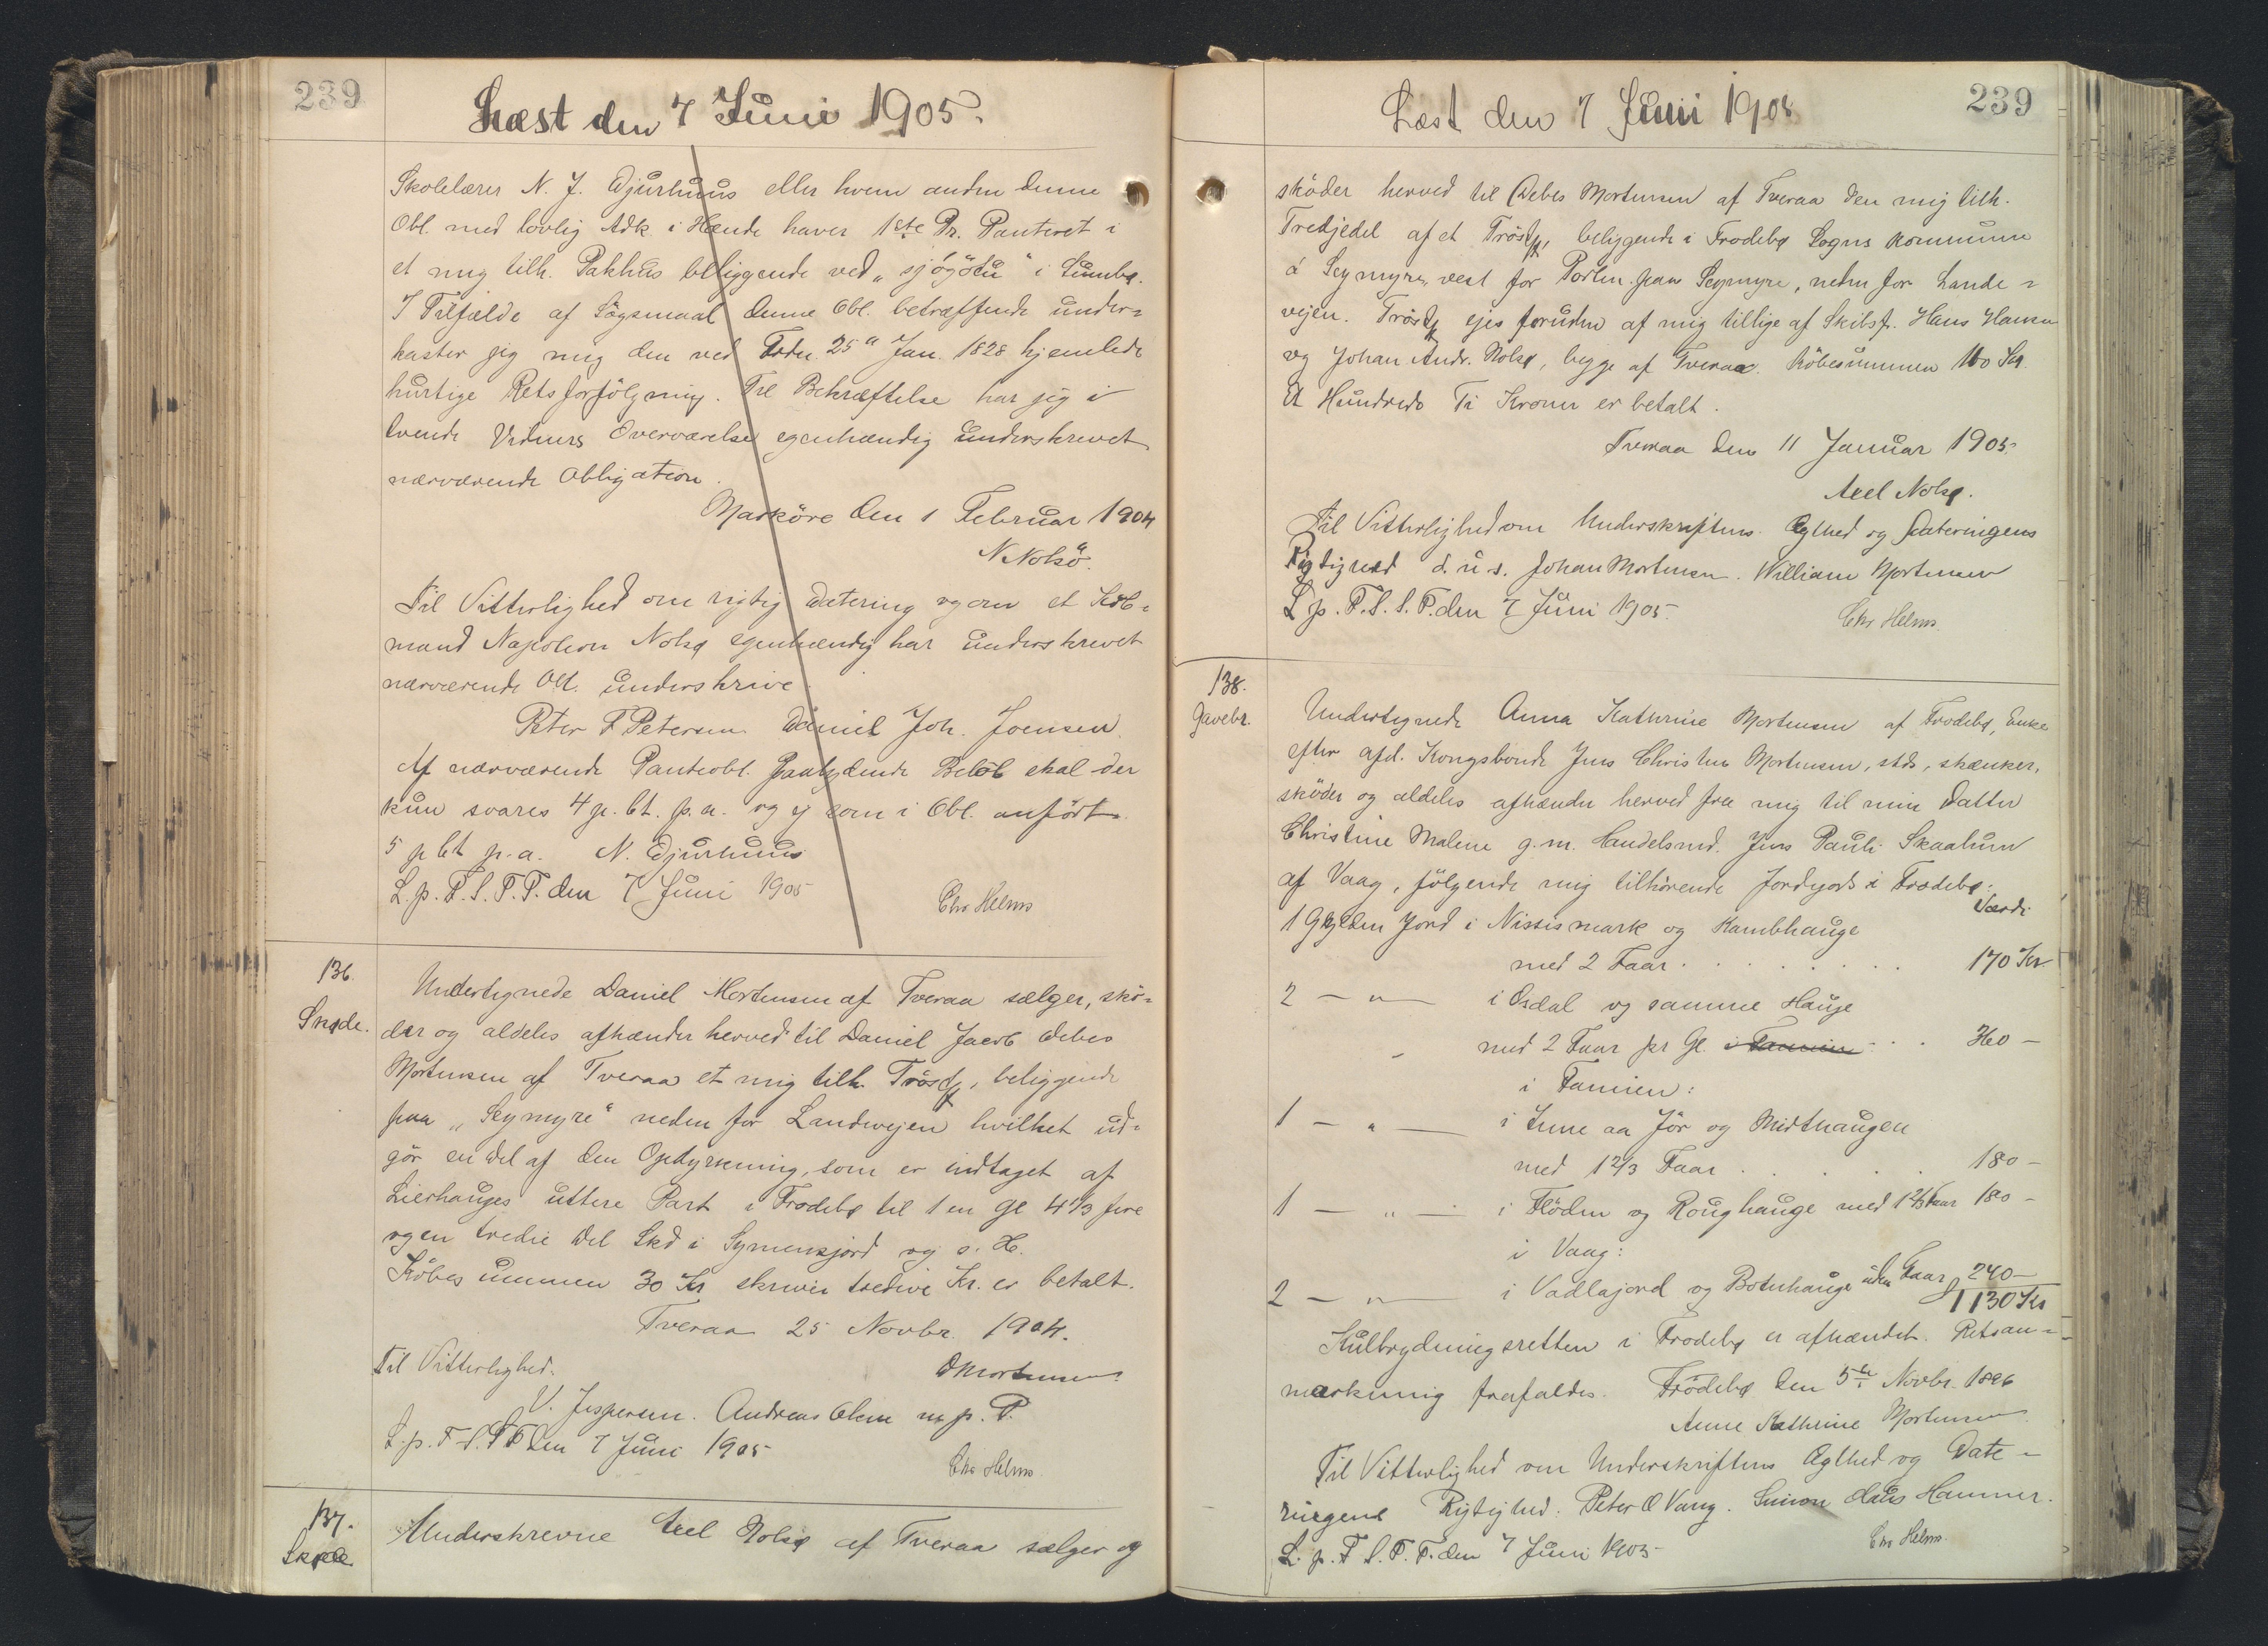 239
Læst den 7 Juni 1905.
Skolelærer N. J. Djurhuus eller hvem anden denne
Obl. med lovlig Adk. i Hænde haver 1ste Pr. Panteret i
et mig tilh. Pakhus beliggende ved „sjógötu“ i Sumbø.
I Tilfælde af Søgsmaal denne Obl. betræffende under=
kaster jeg mig den ved Frdn. 25 Jan. 1828 hjemlede
hurtige Retsforfölgning. Til Bekræftelse har jeg i
tvende Vidners Overværelse egenhændig underskrevet
nærværende Obligation.
den 1 Februar 1904
N Nolsö.
Til Vitterlighed om rigtig Datering og om at Køb=
mand Napoleon Nolsø egenhændig har underskrevet
nærværende Obl. underskrive
Peter F Petersen Daniel Joh. Joensen.
Af nærværende Panteobl. paalydende Beløb skal der
kun svares 4 p. Ct. p. a. og ej som i Obl. anført
5 p Ct p. a. N. Djurhuus
L. p. F. S. T. P. den 7 Juni 1905
Chr Helms
136.
Skøde.
Undertegnede Daniel Mortensen af Tveraa sælger, skö=
der og aldeles afhænder herved til Daniel Jacob Debes
Mortensen af Tveraa et mig tilh. beliggende
paa „Seymyre“ neden for Landevejen hvilket ud=
gör en Del af den Opdyrkning, som er indtaget af
Lierhauges uttere Part i Frodebø til 1 en Gl 4 1/3 fire
og en tredie Del Skd i Symensjord og s. H.
Købesummen 30 Kr skriver tredive Kr. er betalt.
Tveraa 25 Novbr. 1904.
Til Vitterlighed.
D Mortensen
V. Jespersen. Andreas Olsen m. p. P.
L. p. F. S. T. P. den 7 Juni 1905
Chr Helms.
137.
Skøde
Underskrevne Axel Nolsø af Tveraa sælger og
239
Læst den 7 Juni 1905
sköder herved til Debes Mortensen af Tveraa den mig tilh.
Tredjedel af et beliggende i Frodebø Sogns Kommune
á Seymyre, vest for Porten paa Seymyre, neden for Lande=
vejen. ejes foruden af mig tillige af Skibsf. Hans Hansen
og Johan Andr. Nolsø, begge af Tveraa. Köbesummen 110 Kr.
Et Hundrede Ti Kroner er betalt.
Tveraa den 11 Januar 1905.
Axel Nolsø.
Til Vitterlighed om Underskriftens Ægthed og Dateringens
Rigtighed d. u. s. Johan Mortensen. William Mortensen
L. p. F. S. T. P. den 7 Juni 1905.
Chr Helms.
138.
Gavebr.
Undertegnede Anna Kathrine Mortensen af Frodebø, Enke
efter afd. Kongsbonde Jens Christen Mortensen, stds, skænker,
sköder og aldeles afhænder herved fra mig til min Datter
Christine Malene g. m. Handelsmd. Jens Pauli Skaalum
af Vaag, følgende mig tilhörende Jordgods i Frodebø.
Værdi
1 Gylden Jord i Nissismark og Kambhauge
med 2 Faar . . . . . . . 170 Kr
2 — „ — i Osdal og samme Hauge
med 2 Faar pr Gl. i Famien . . 360 —
i Famien:
1 — „ — i Inne aa Jör og Midthaugen
med 1 2/3 Faar . . . . . 180 —
1 — „ — i Flöden og Roughauge med 1 2/3 Faar 180 —
i Vaag:
2 — „ — i Vadlajord og Botnhauge uden Faar 240 —
1130 Kr
Kulbrydningsretten i Frodebø er afhændet. Retsan=
mærkning frafaldes. Frödebø den 5te Novbr. 1896
Anne Kathrine Mortensen.
Til Vitterlighed om Underskriftens Ægthed og Date=
ringens Rigtighed: Peter O Vang. Hammer.
L. p. F. S. T. P. den 7 Juni 1905
Chr Helms.